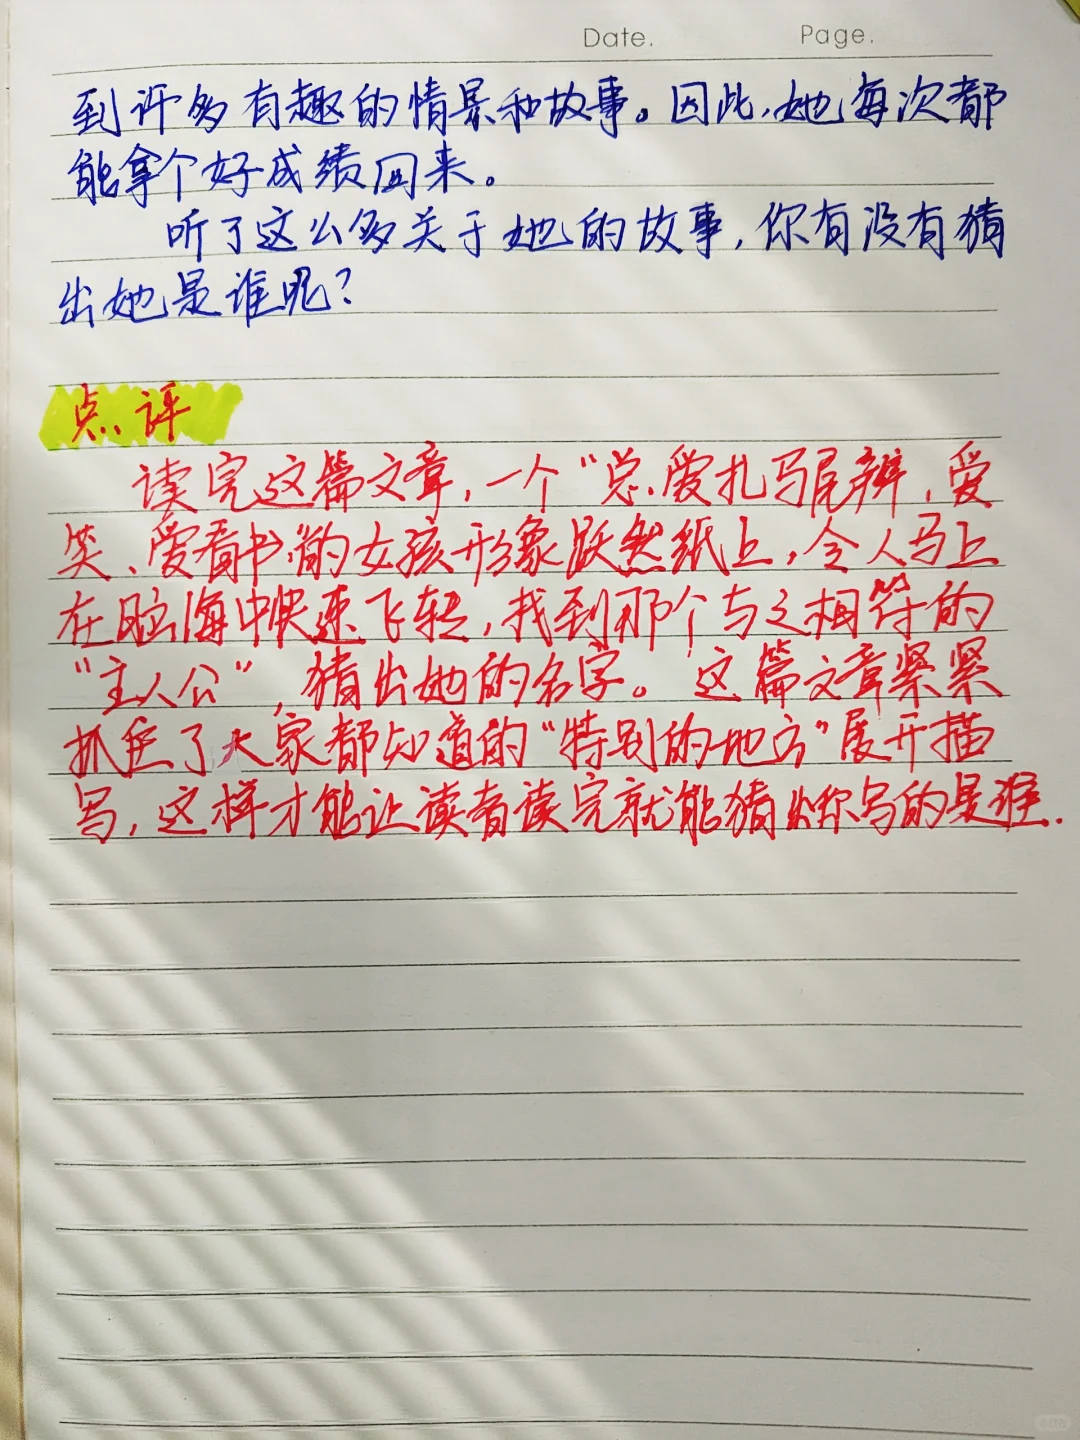 Date.    Page.
到许多有趣的情景和故事。因此，她每次都
能拿个好成绩回来。
听了这么多关于她的故事，你有没有猜
出她是谁呢？
点评
读完这篇文章，一个“总爱扎马尾辫、爱
笑、爱看书”的女孩形象跃然纸上，令人马上
在脑海中快速飞转，找到那个与之相符的
“主人公”，猜出她的名字。这篇文章紧紧
抓住了大家都知道的“特别的地方”展开描
写，这样才能让读者读完就能猜出你写的是谁.